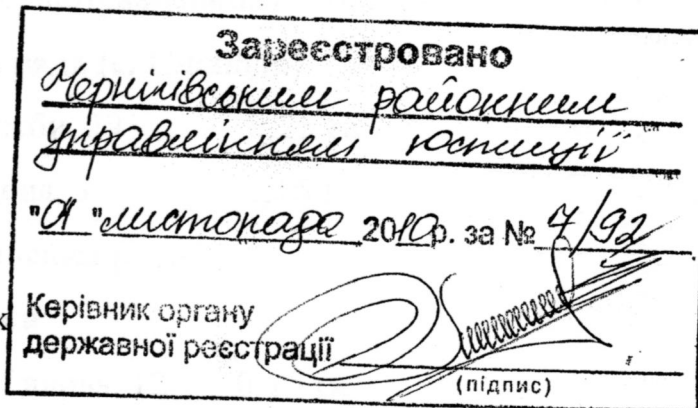 Зареєстровано
Чернігівським районним
управлінням юстиції
"01" листопада 2010р. за № 7/92
Керівник органу
державної реєстрації
(підпис)